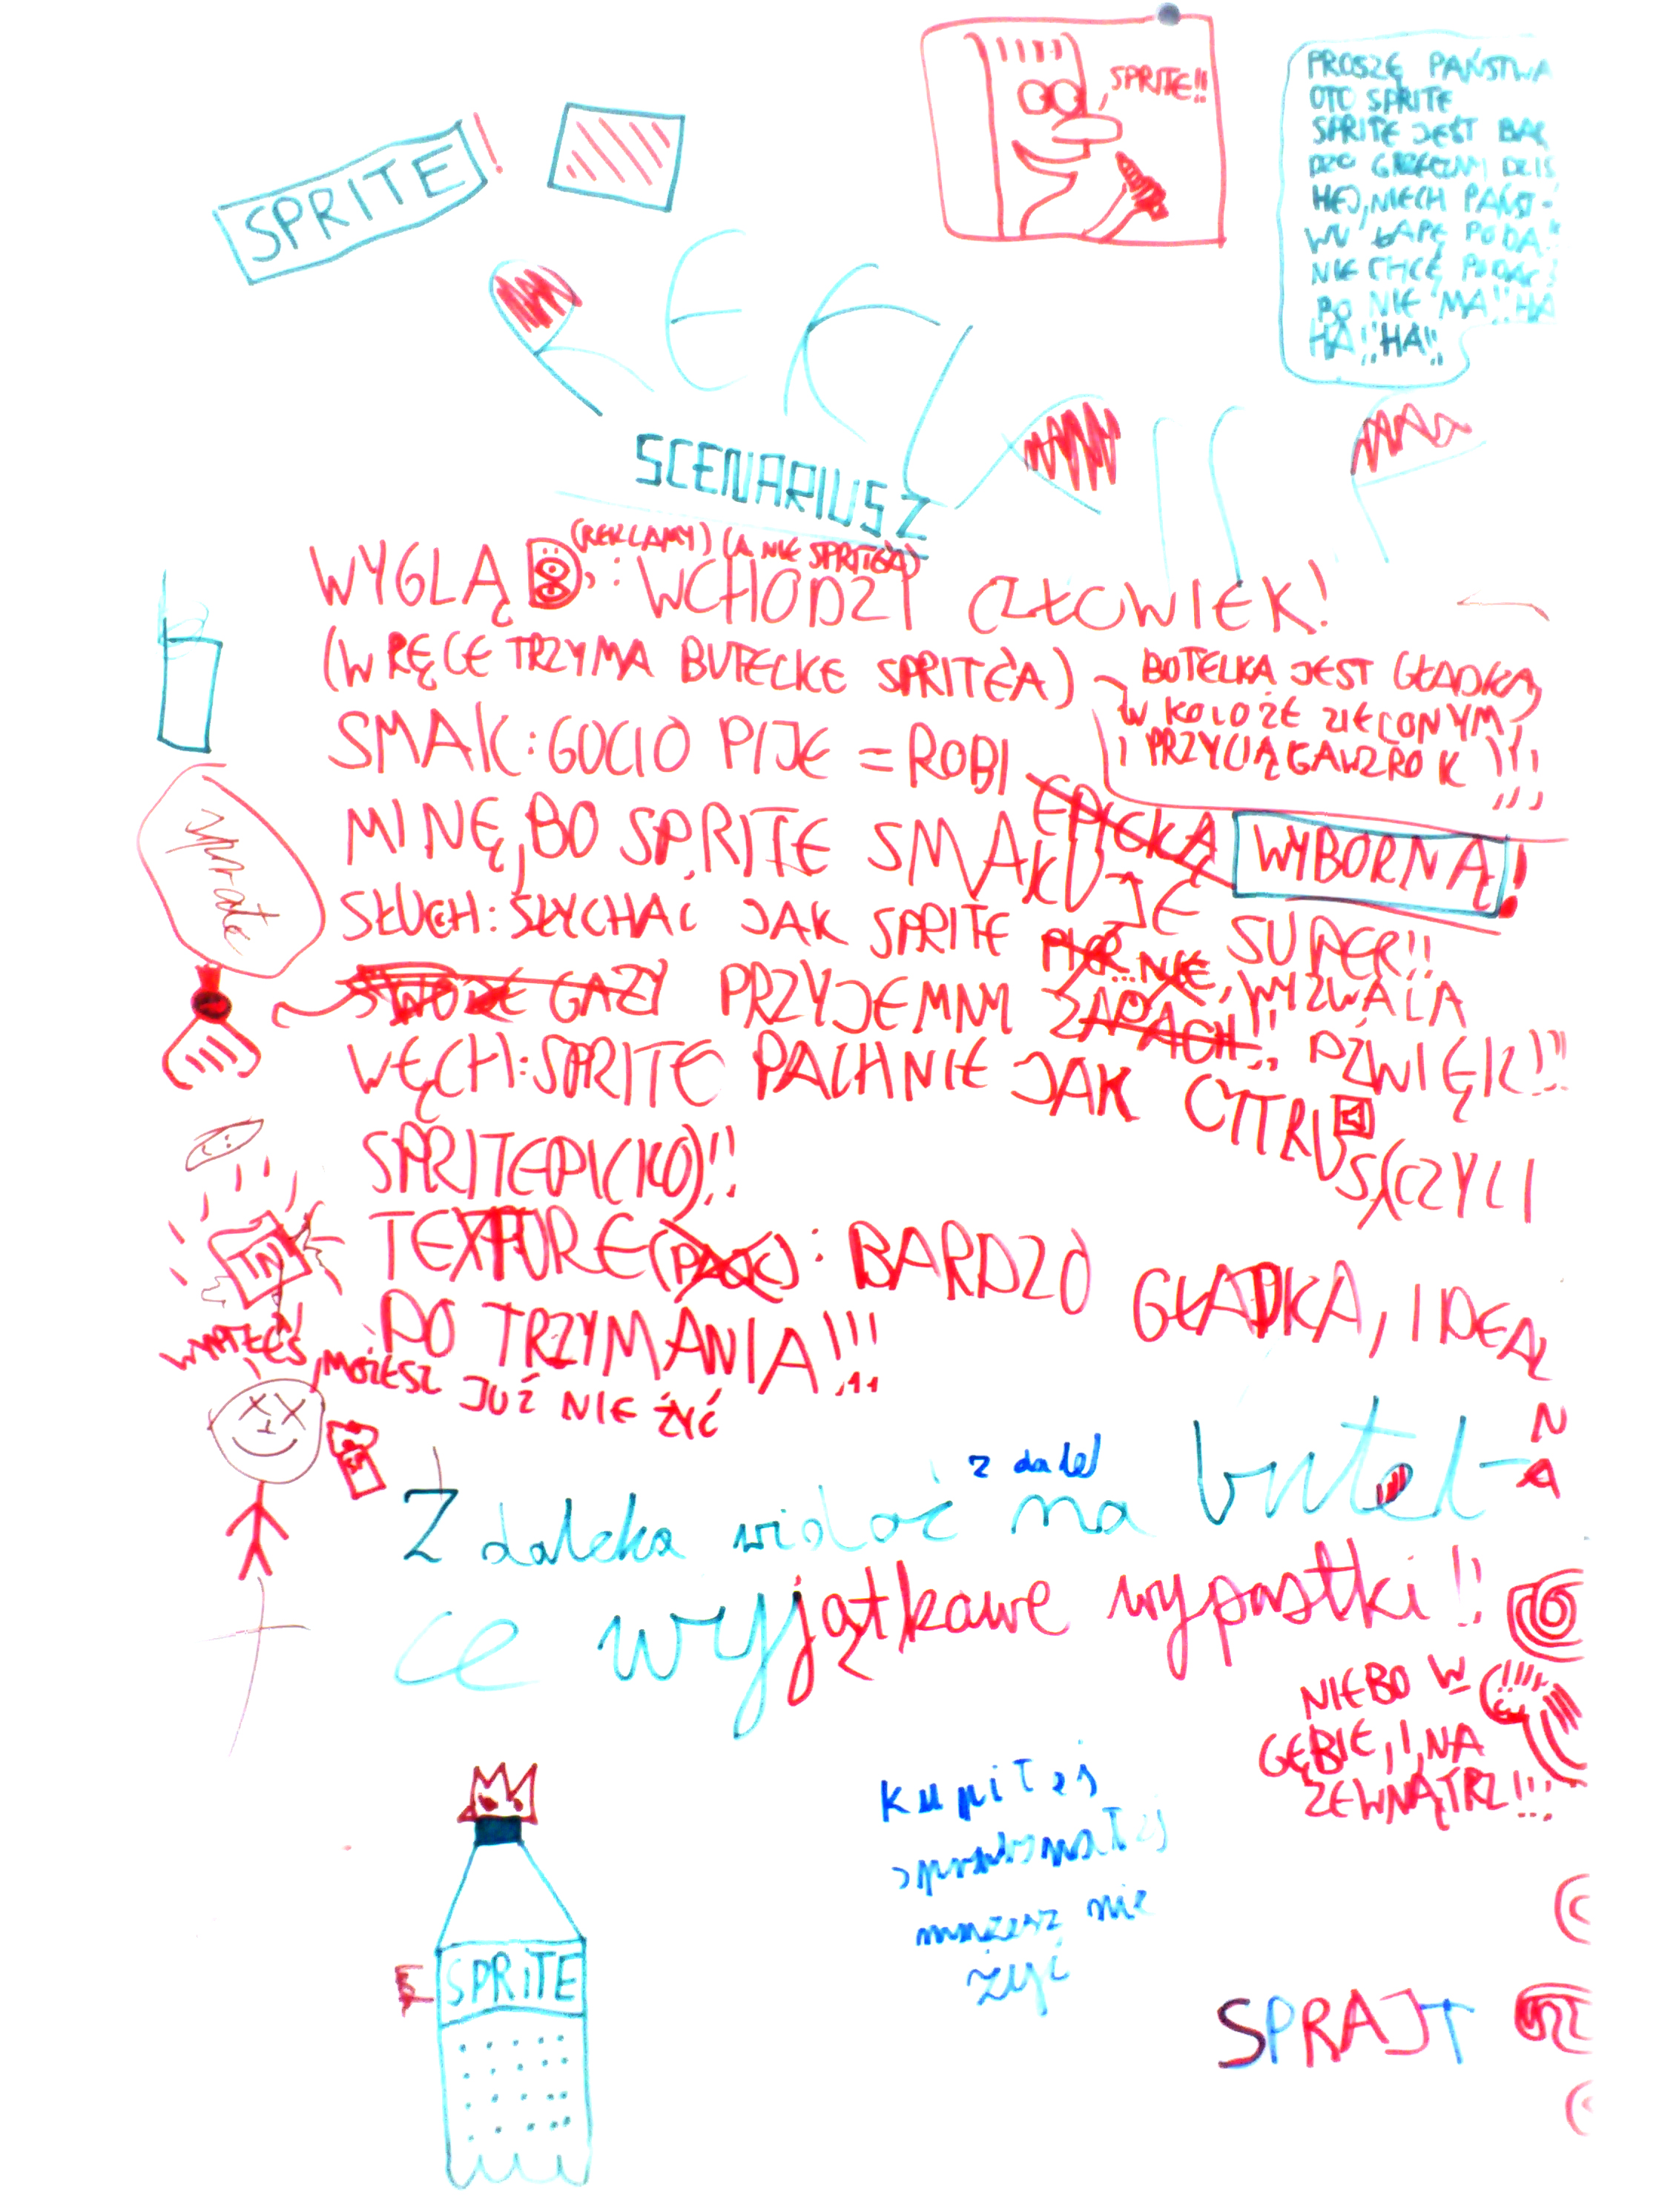 SPRITE!
SPRITE!!
PROSZĘ PAŃSTWA
OTO SPRITE
SPRITE JEST BAR
DZO GRZECZNY DZIŚ
HEJ, NIECH PAŃST-
WU ŁAPĘ PODA!
NIE CHCĘ PODAĆ
BO NIE MA!! HA
HA!! HA!!
REKLAMA
SCENARIUSZ
(REKLAMY) (A NIE SPRITE'A)
WYGLĄD: WCHODZI CZŁOWIEK!
(W RĘCE TRZYMA BUTECKE SPRITE'A)
BOTELKA JEST GŁADKA,
W KOLOŻE ZIELONYM
I PRZYCIĄGA WZROK!!!
SMAK: GUCIO PIJE = ROBI
EPICKĄ WYBORNĄ!
MINĘ, BO SPRITE SMAKUJE SUPER!!
SŁUCH: SŁYCHAĆ JAK SPRITE
SWOJE GAZY PRZYJEMNY ZAPACH!! WYZWALA
DŹWIĘK!!!
WĘCH: SPRITE PACHNIE JAK CYTRUS (CZYLI
SPRITEPICKO)!!
TEXTURE: BARDZO GŁADKA, IDEAL
NA
DO TRZYMANIA!!!
sprite
WYPIŁEŚ, MOŻESZ JUŻ NIE ŻYĆ
z dalek
Z daleka widać na butel-
ce wyjątkowe wypustki!!
NIEBO W
GĘBIE, I NA
ZEWNĄTRZ!!!
kupiłeś
spróbowałeś
możesz nie
żyć
SPRITE
SPRAJT